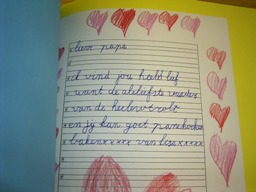 lieve papa
ik vind jou heel lief
want de allerliefste vader
van de hele wereld
en jij kan goet panekoeken
baken xxxxx van lisa xxxxx